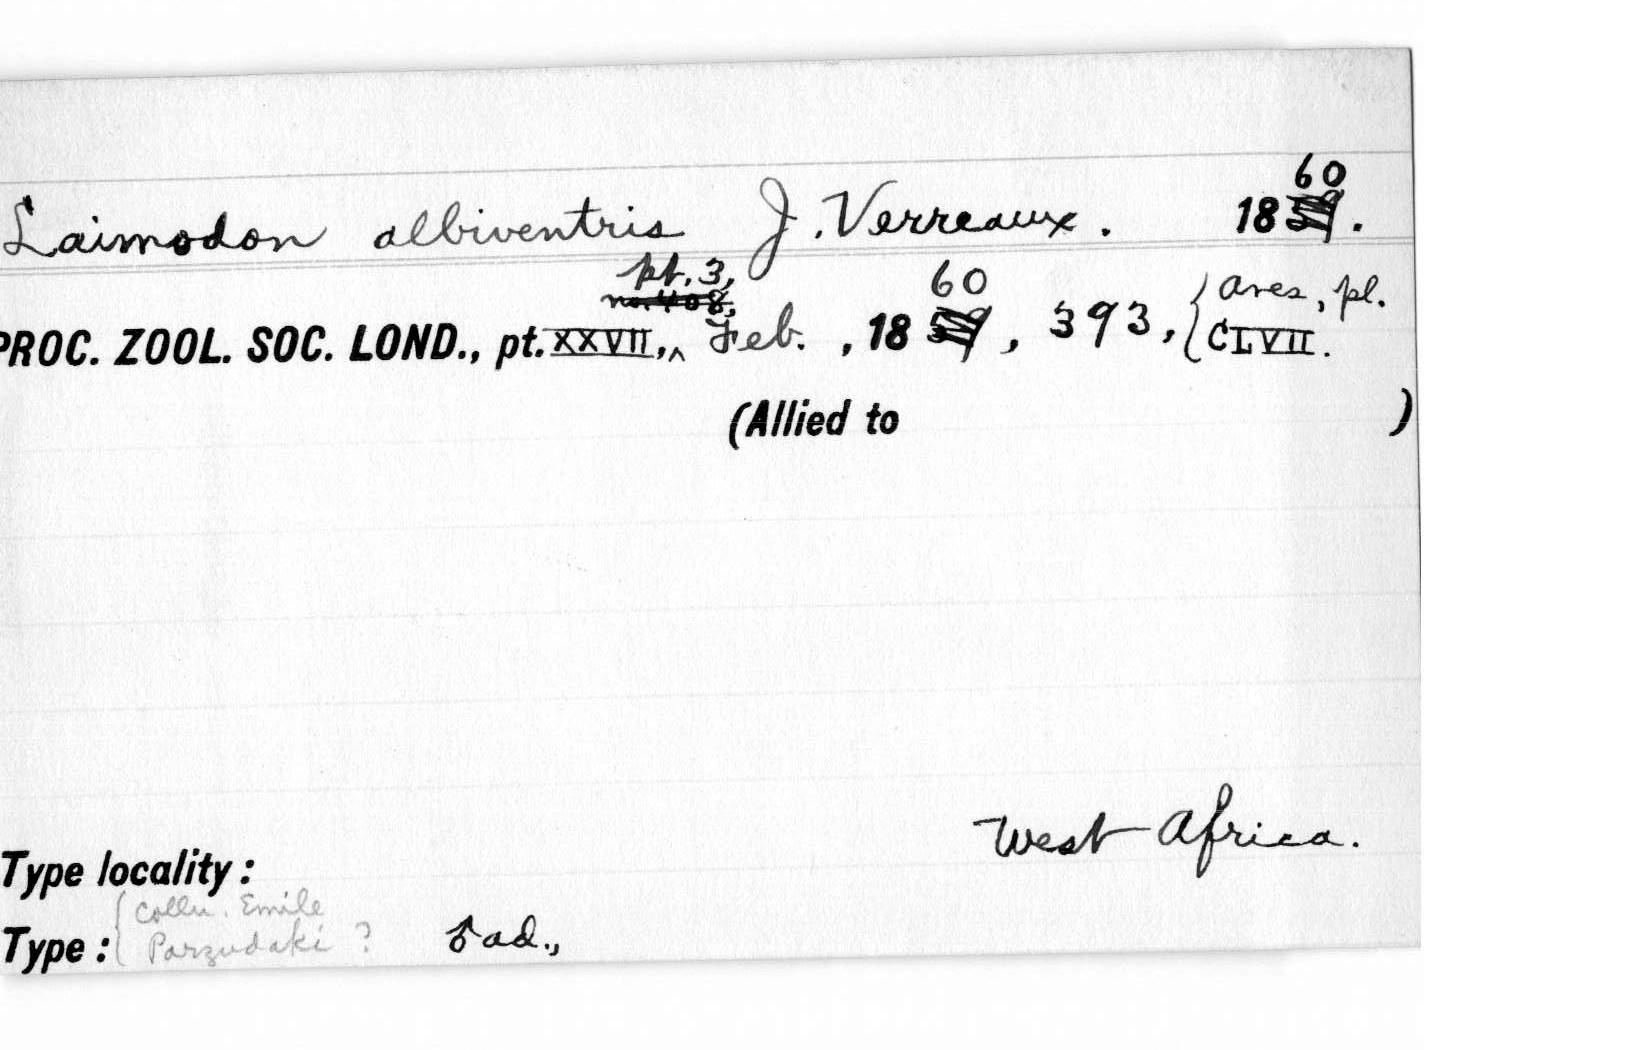 Laimodon albiventris J. Verreaux. 1859. 60
pt. 3,
no. 408,
PROC. ZOOL. SOC. LOND., pt. XXVII, ^ Feb., 1859, 60, 393, { Aves, pl.
CLVII.
(Allied to )
West Africa.
Type locality:
{ Colln. Emile
Type: Parzudaki ? ♂ ad.,